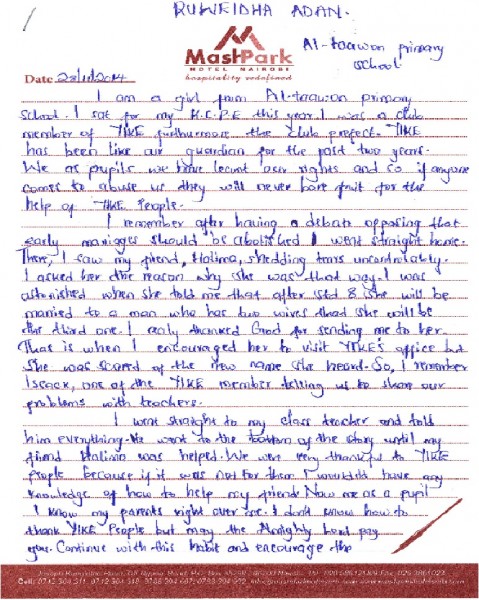 RUWEIDHA ADAN.
Al-taawon primary
school
MastPark
HOTEL NAIROBI
hospitality redefined
Date 28/11/2014
I am a girl from Al-taawon primary
school. I sat for my K.C.P.E this year. I was a club
member of YIKE furthermore the club prefect. YIKE
has been like our guardian for the past two years.
We as pupils we have learnt our rights and so if anyone
comes to abuse us they will never bare fruit for the
help of YIKE People.
I remember after having a debate opposing that
early mariages should be abolished I went straight home.
There, I saw my friend, Halima, shedding tears uncontrolably.
I asked her the reason why she was that way. I was
astonished when she told me that after std 8 she will be
married to a man who has two wives thad she will be
the third one. I realy thanked God for sending me to her.
That is when I encouraged her to visit YIKE's office but
she was scared of the new name she heard. So, I remember
Isaack, one of the YIKE member telling us to share our
problems with teachers.
I went straight to my class teacher and told
him everything. He went to the bottom of the story until my
friend Halima was helped. We were very thankful to YIKE
People because if it was not for them I wouldn't have any
knowledge of how to help my friend. Now me as a pupil
I know my parents right over me. I don't know how to
thank YIKE People but may the Almighty Lord pay
you. Continue with this habit and encourage the